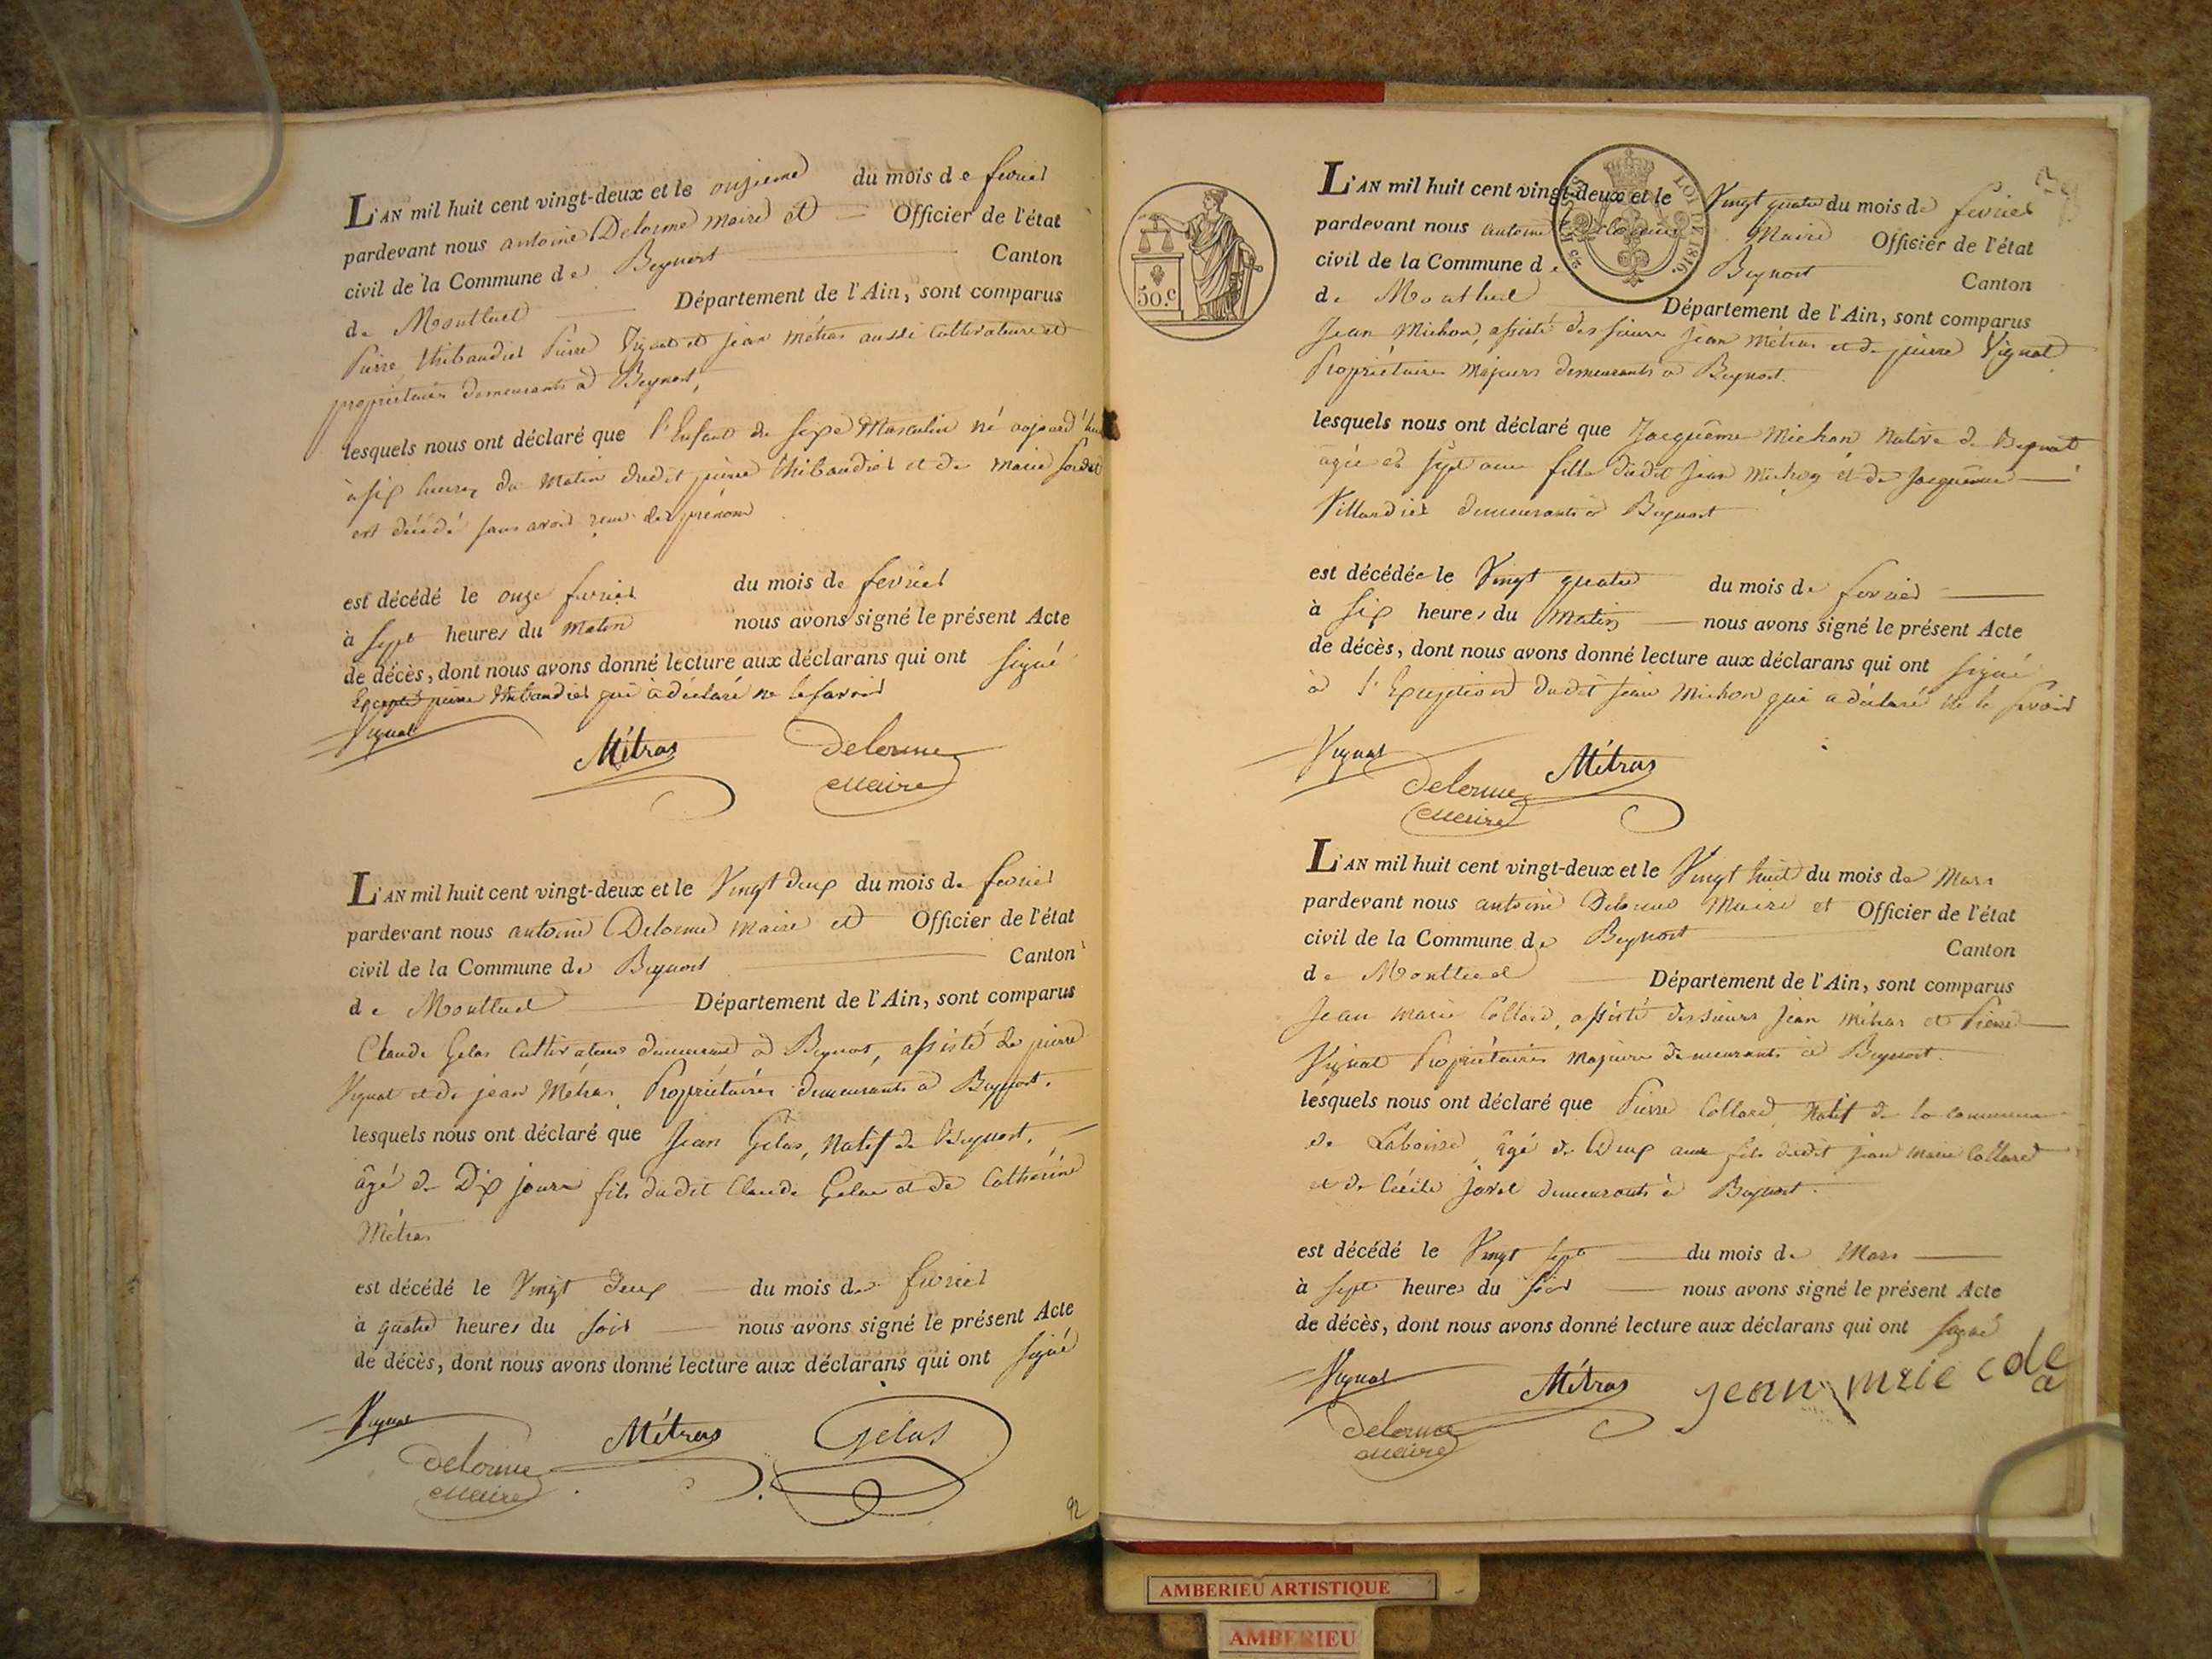 L'AN mil huit cent vingt-deux et le onzieme du mois de fevrier
pardevant nous antoine Delorme maire et Officier de l'état
civil de la Commune de Beynost Canton
de Montluel Département de l'Ain, sont comparus
Pierre thibaudier Pierre Vignat et jean métras aussi Cultivateurs et
propriétaires demeurants à Beynost,
lesquels nous ont déclaré que l'Enfant du sexe Masculin né aujourd'hui
à six heures du Matin dudit pierre thibaudier et de marie
est décédé sans avoir reçu des prénoms
est décédé le onze fevrier du mois de fevrier
à sept heures du matin nous avons signé le présent Acte
de décès, dont nous avons donné lecture aux déclarans qui ont signé
Excepté pierre thibaudier qui à déclaré ne le savoir
Vignat
Métras
Delorme
Maire
L'AN mil huit cent vingt-deux et le Vingt deux du mois de fevrier
pardevant nous antoine Delorme maire et Officier de l'état
civil de la Commune de Beynost Canton
de Montluel Département de l'Ain, sont comparus
Claude Gelas Cultivateur demeurant à Beynost, assisté de pierre
Vignat et de jean Métras Propriétaires demeurants à Beynost.
lesquels nous ont déclaré que Jean Gelas, Natif de Beynost,
âgé de Dix jours fils dudit Claude Gelas et de Cathérine
Métras
est décédé le Vingt deux du mois de fevrier
à quatre heures du soir nous avons signé le présent Acte
de décès, dont nous avons donné lecture aux déclarans qui ont signé
Vignat
Métras
Gelas
Delorme
Maire
92
50.c
LOI DE 1816.
L'AN mil huit cent vingt-deux et le Vingt quatre du mois de fevrier
pardevant nous antoine Delorme Maire Officier de l'état
civil de la Commune de Beynost Canton
de Montluel Département de l'Ain, sont comparus
Jean Michon, assisté des sieurs Jean Métras et de pierre Vignat
Propriétaires Majeurs demeurants à Beynost.
lesquels nous ont déclaré que Jacquême Michon Native de Beynost
agée de sept ans fille dudit Jean Michon et de Jacquême
Villardier demeurants à Beynost
est décédée le Vingt quatre du mois de fevrier
à six heures du Matin nous avons signé le présent Acte
de décès, dont nous avons donné lecture aux déclarans qui ont signé
à l'Exception dudit Jean Michon qui a déclaré ne le savoir
Vignat
Métras
Delorme
Maire
L'AN mil huit cent vingt-deux et le Vingt huit du mois de Mars
pardevant nous antoine Delorme Maire et Officier de l'état
civil de la Commune de Beynost Canton
de Montluel Département de l'Ain, sont comparus
Jean marie Collard, assisté des sieurs Jean Métras et Pierre
Vignat Propriétaires Majeurs demeurants à Beynost.
lesquels nous ont déclaré que Pierre Collard, Natif de la commune
de Laboisse, âgé de Deux ans fils dudit jean Marie Collard
et de Cécile Javel demeurants à Beynost.
est décédé le Vingt sept du mois de Mars
à sept heures du soir nous avons signé le présent Acte
de décès, dont nous avons donné lecture aux déclarans qui ont signé
Vignat
Métras
jean mrie
Delorme
Maire
AMBERIEU ARTISTIQUE
AMBERIEU